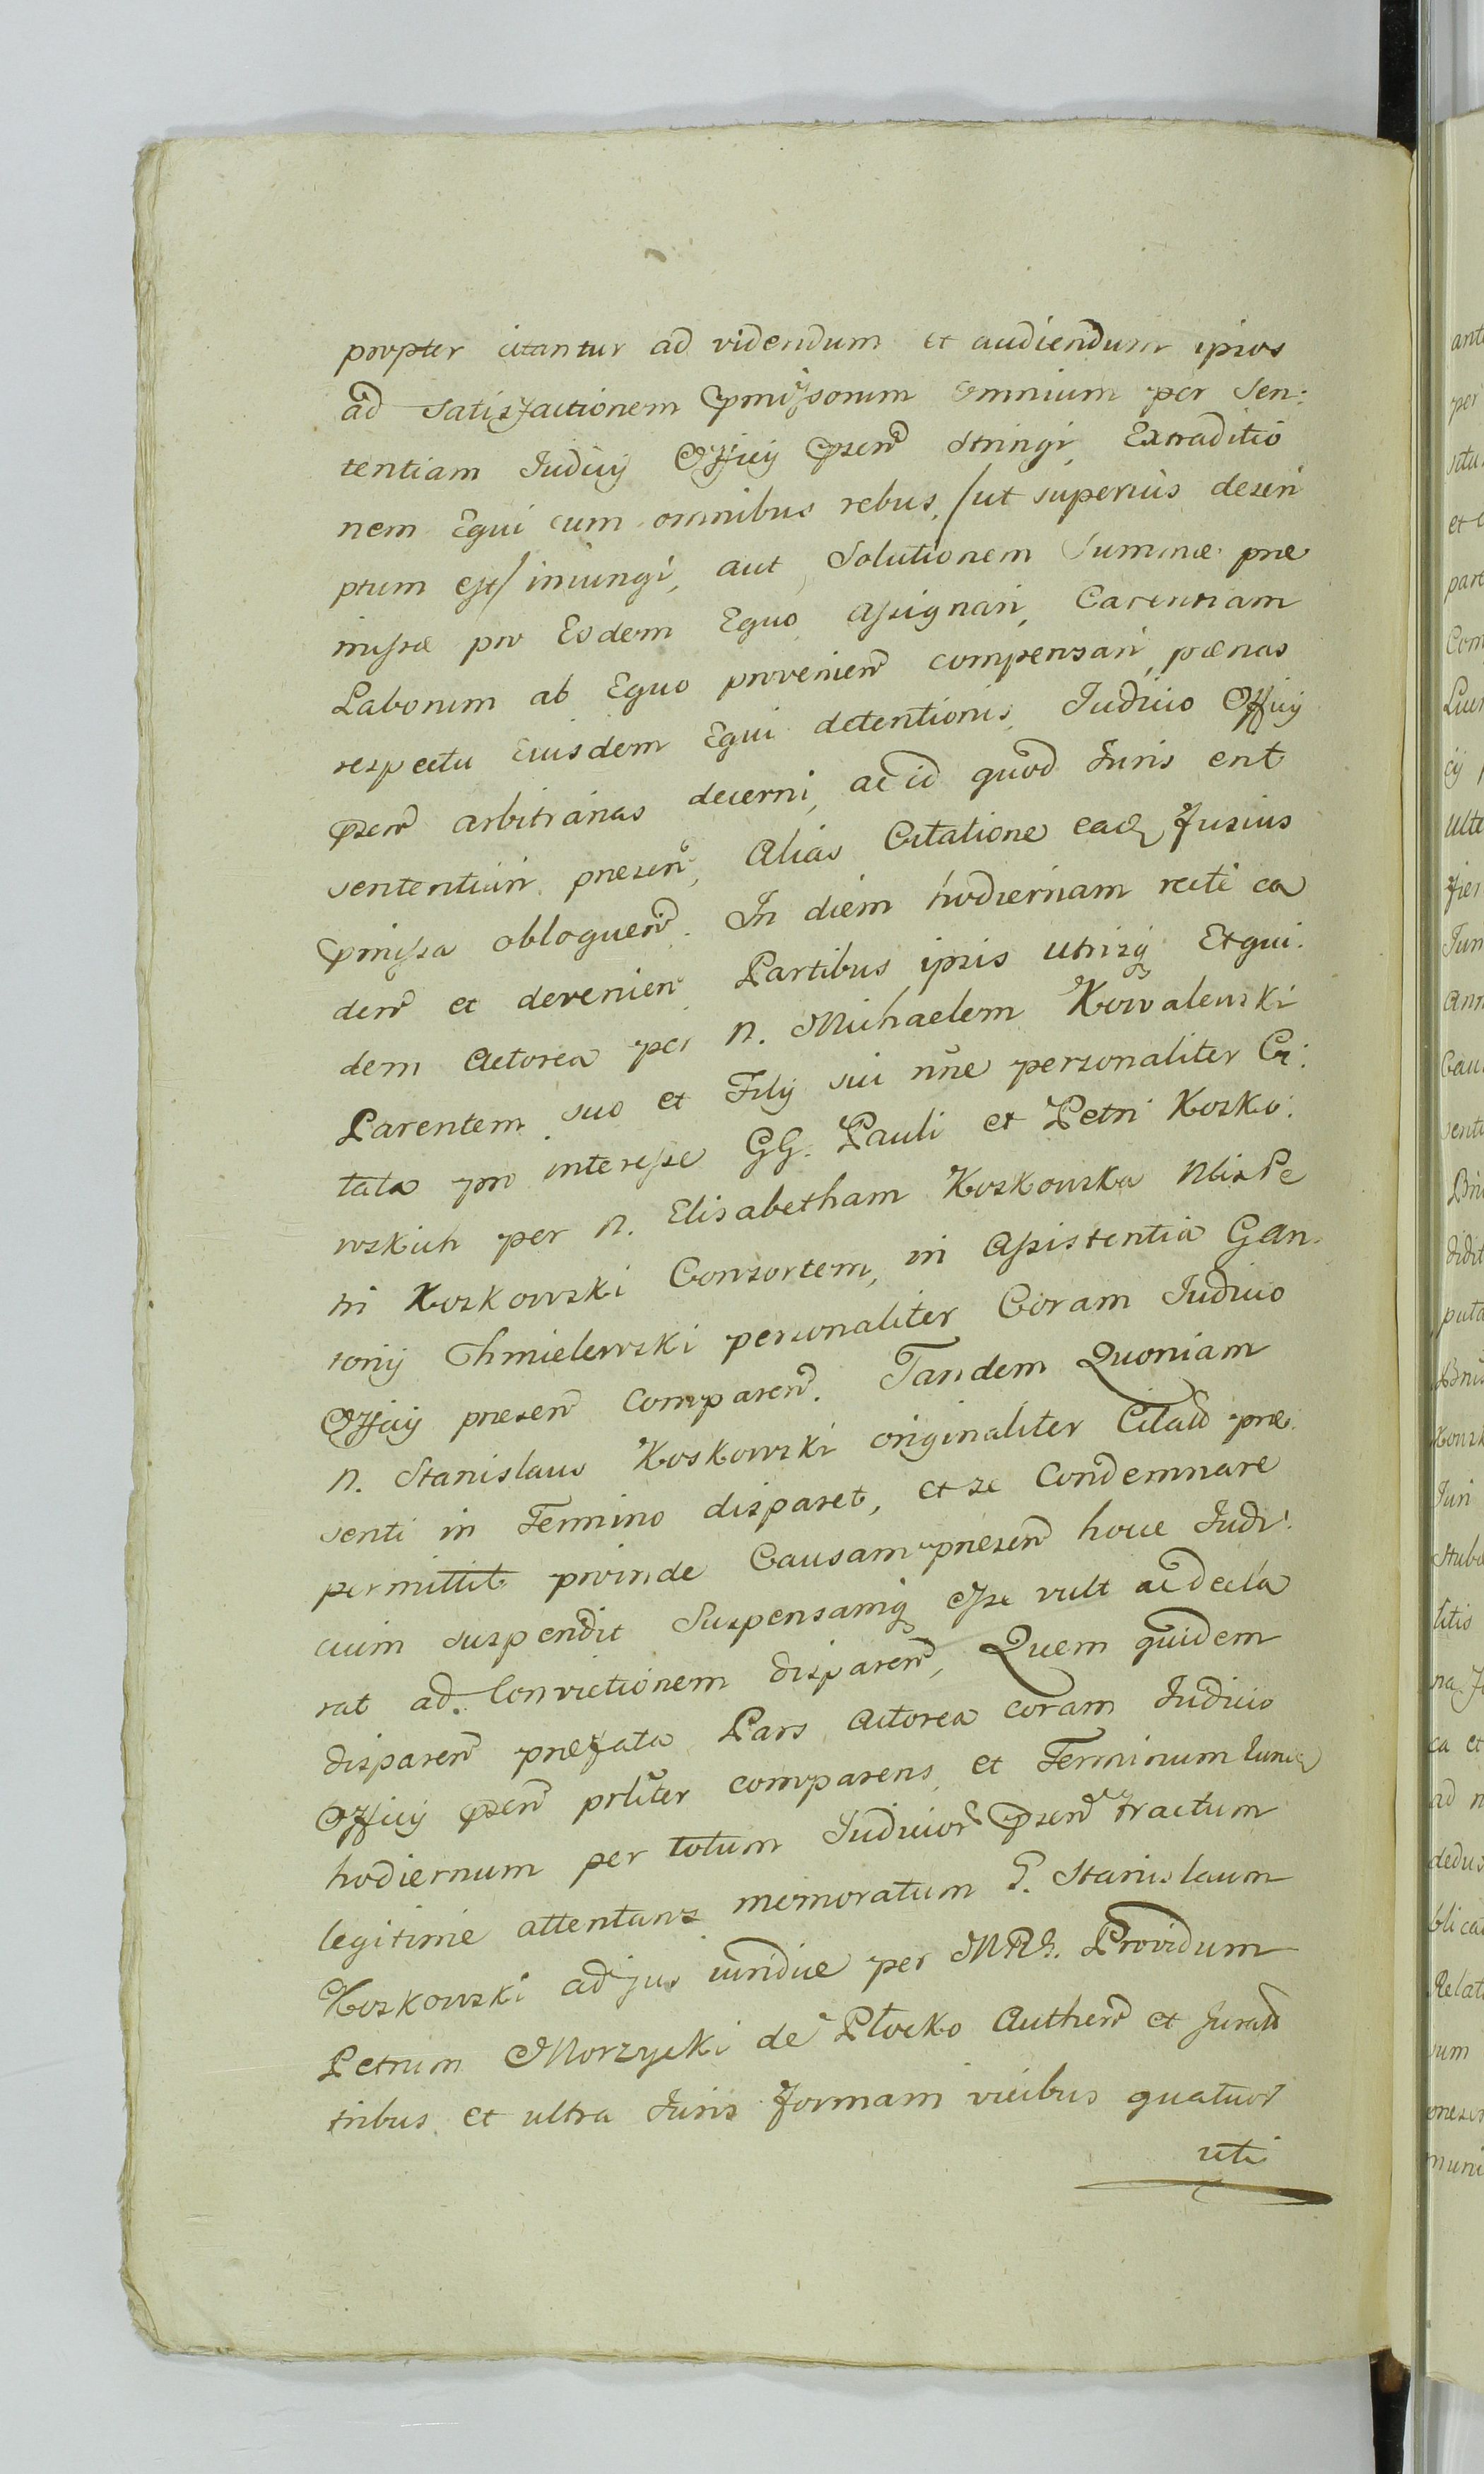 propter citantur ad videndum et audiendum ipsos
ad satisfactionem pmissorum omnium per Sen:
tentiam Judicij Officij psen stringi, Extraditio
nem Equi cum omnibus rebus, /ut superius descri
ptum est/ iniungi, aut Solutionem Summæ præ
missæ pro Eodem Equo assignari, Carentiam
Laborum ab Equo provenien compensari, pœnas
respectu Eiusdem Equi detentionis, Judicio Officij
psen arbitrarias decerni, ac id quod Juris erit
sententiari præsen, Alias Citatione eadq fusius
pmissa obloquen. In diem hodiernam recte ca
den et devenien Partibus ipsis utrisq Etqui:
dem Actorea per N. Michaelem Kowalewski
Parentem suo et Filij sui nne personaliter Ci:
tata pro interesse GG. Pauli et Petri Kosko:
wskich per N. Elisabetham Koskowska Nlis Pe
tri Koskowski Consortem, in Assistentia G An:
tonij Chmielewski personaliter Coram Judicio
Officij præsen Comparen. Tandem Quoniam
N. Stanislaus Koskowski originaliter Citat præ
senti in Termino disparet, et se Condemnare
permittit proinde Causam præsen hocce Judi:
cium suspendit Suspensamq esse vult ac decla
rat ad Convictionem disparen, Quem quidem
disparen præfata Pars Actorea coram Judicio
Officij psen prliter comparens, et Terminum
hodiernum per totum Judicior psen tractum
legitime attentans memoratum G. Stanislaum
Koskowski ad jus iuridice per MRG. Providum
Petrum Morzycki de Płocko Authen et Jurat
tribus et ultra Juris formam vicibus quatuor
uti